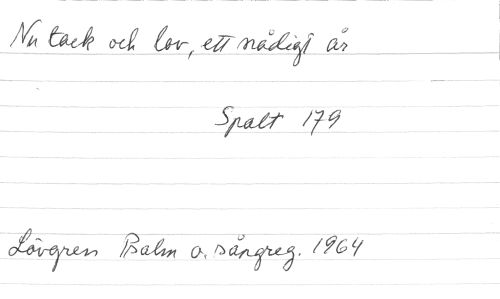 Nu tack och lov, ett nådigt år
Spalt 179
Lövgren Psalm o. sångreg. 1964